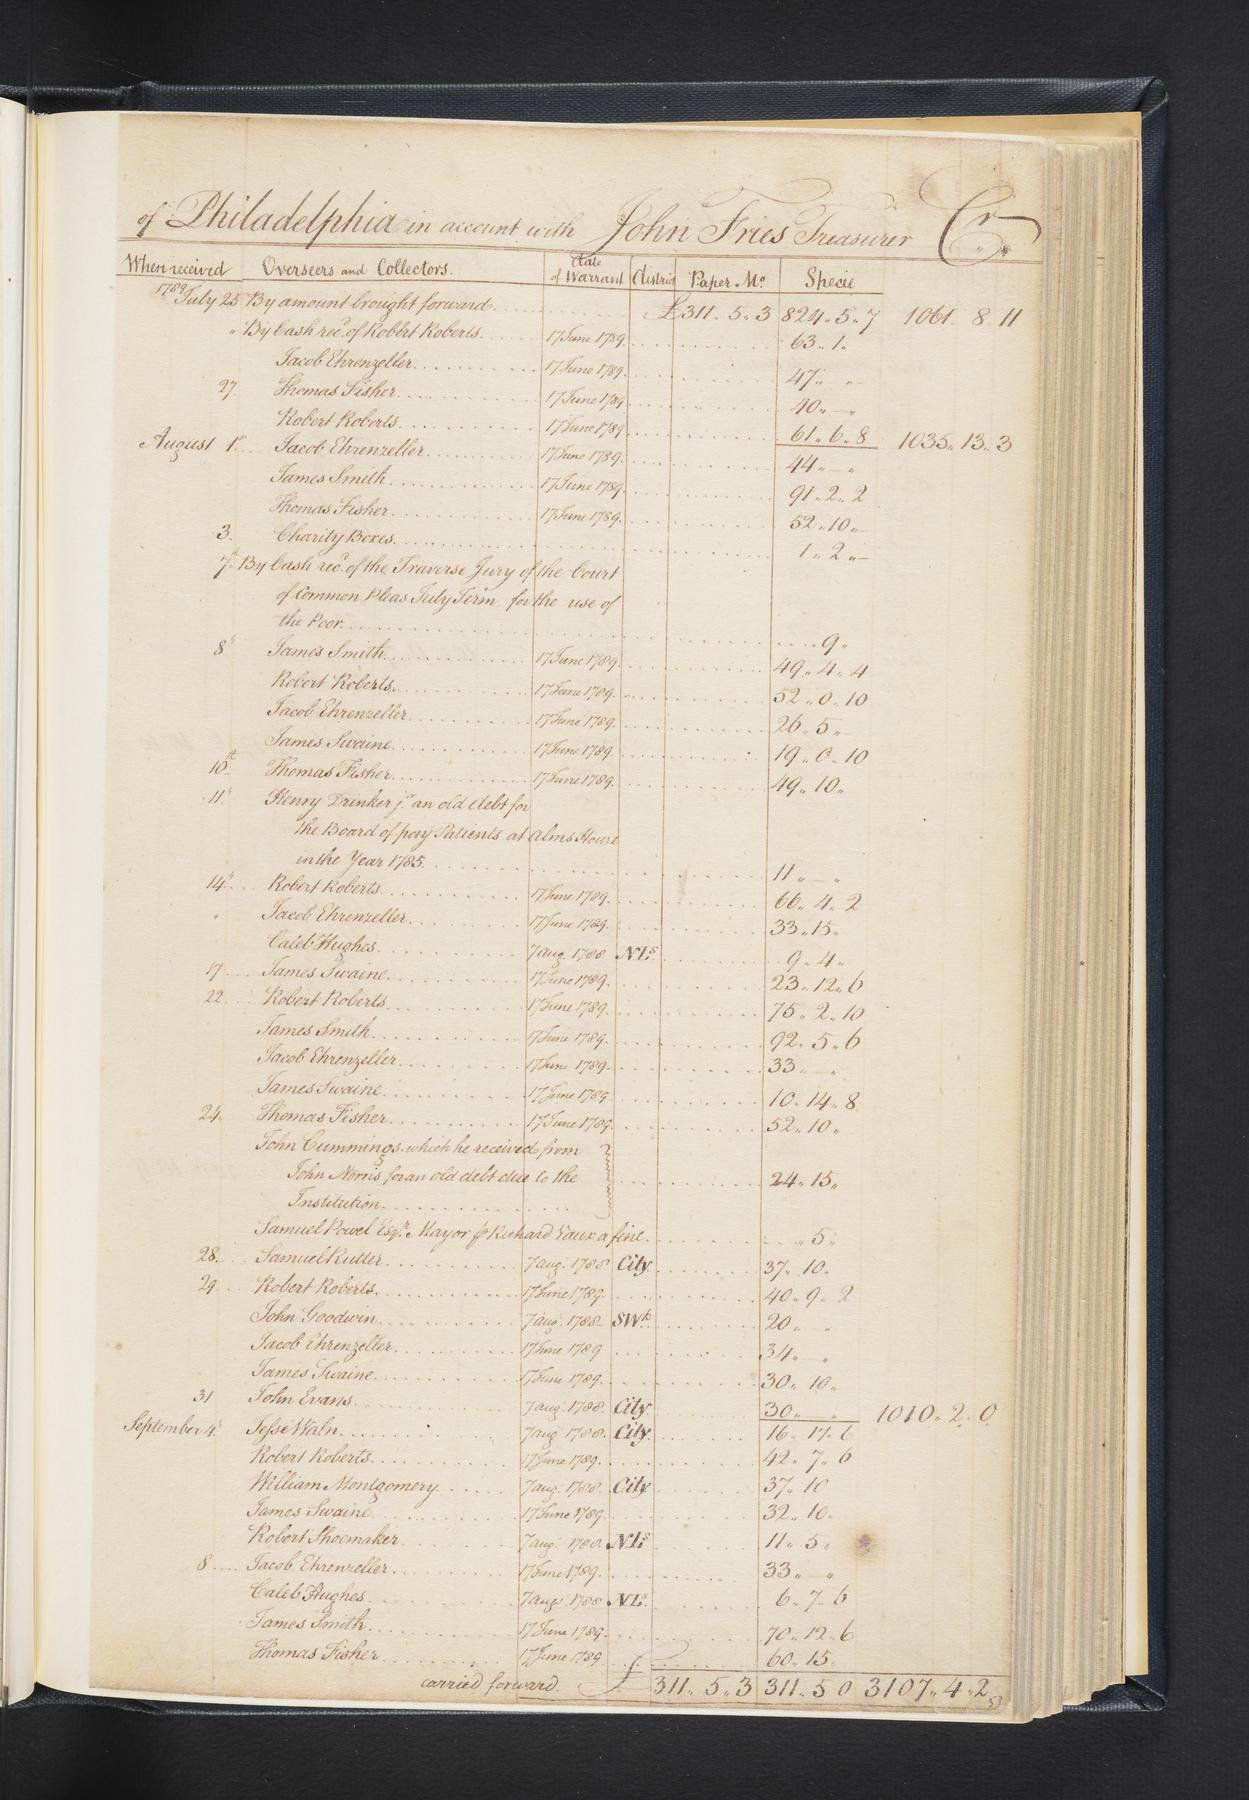 of Philadelphia in account with John Fries Treasurer Cr
When received Overseers and Collectors. Date of Warrant District Paper Mo. Specie
1789 July 25 By amount brought forward £311. 5. 3 824. 5. 7 1061. 8. 11
" By Cash rec'd. of Robert Roberts 17 June 1789. 63. 1.
Jacob Ehrenzeller 17 June 1789. 47. " "
27 Thomas Fisher 17 June 1789 40. " "
Robert Roberts 17 June 1789 61. 6. 8 1035. 13. 3
August 1st Jacob Ehrenzeller 17 June 1789. 44. — "
James Smith 17 June 1789. 91. 2. 2
Thomas Fisher 17 June 1789. 52. 10.
3. Charity Boxes 1. 2. —
7th By Cash rec'd. of the Traverse Jury of the Court
of Common Pleas July Term for the use of
the Poor 9.
8th James Smith 17 June 1789. 49. 4. 4
Robert Roberts 17 June 1789. 52. 0. 10
Jacob Ehrenzeller 17 June 1789. 26. 5. —
James Swaine 17 June 1789. 19. 0. 10
10th Thomas Fisher 17 June 1789. 49. 10.
11th Henry Drinker jr. an old debt for
the Board of pay Patients at Alms House
in the Year 1785. 11. — "
14th Robert Roberts 17 June 1789. 66. 4. 2
" Jacob Ehrenzeller 17 June 1789. 33. 15.
Caleb Hughes 7 Aug. 1788 NLs. 9. 4.
17 James Swaine 17 June 1789. 23. 12. 6
22 Robert Roberts 17 June 1789. 75. 2. 10
James Smith 17 June 1789. 92. 5. 6
Jacob Ehrenzeller 17 June 1789. 33. — "
James Swaine 17 June 1789 10. 14. 8
24. Thomas Fisher 17 June 1789. 52. 10.
John Cummings which he received from
John Norris for an old debt due to the 24. 15.
Institution
Samuel Powel Esqr. Mayor fr Richard Vaux a fine. " 5.
28. Samuel Rutter 7 Aug. 1788 City 37. 10.
29 Robert Roberts 17 June 1789. 40. 9. 2
John Goodwin 7 Aug. 1788 SWk 20. — "
Jacob Ehrenzeller 17 June 1789 34. — "
James Swaine 17 June 1789. 30. 10.
31 John Evans 7 Aug. 1788. City 30. " 1010. 2. 0
September 4th Jesse Waln 7 Aug. 1788. City 16. 17. 6
Robert Roberts 17 June 1789. 42. 7. 6
William Montgomery 7 Aug. 1788. City 37. 10
James Swaine 17 June 1789. 32. 10.
Robert Shoemaker 7 Aug. 1788 NLs 11. 5.
8 Jacob Ehrenzeller 17 June 1789. 33. "
Caleb Hughes 7 Aug. 1788 NLs. 6. 7. 6
James Smith 17 June 1789. 70. 12. 6
Thomas Fisher 17 June 1789 60. 15.
carried forward £ 311. 5. 3 311. 5 0 3107. 4. 2